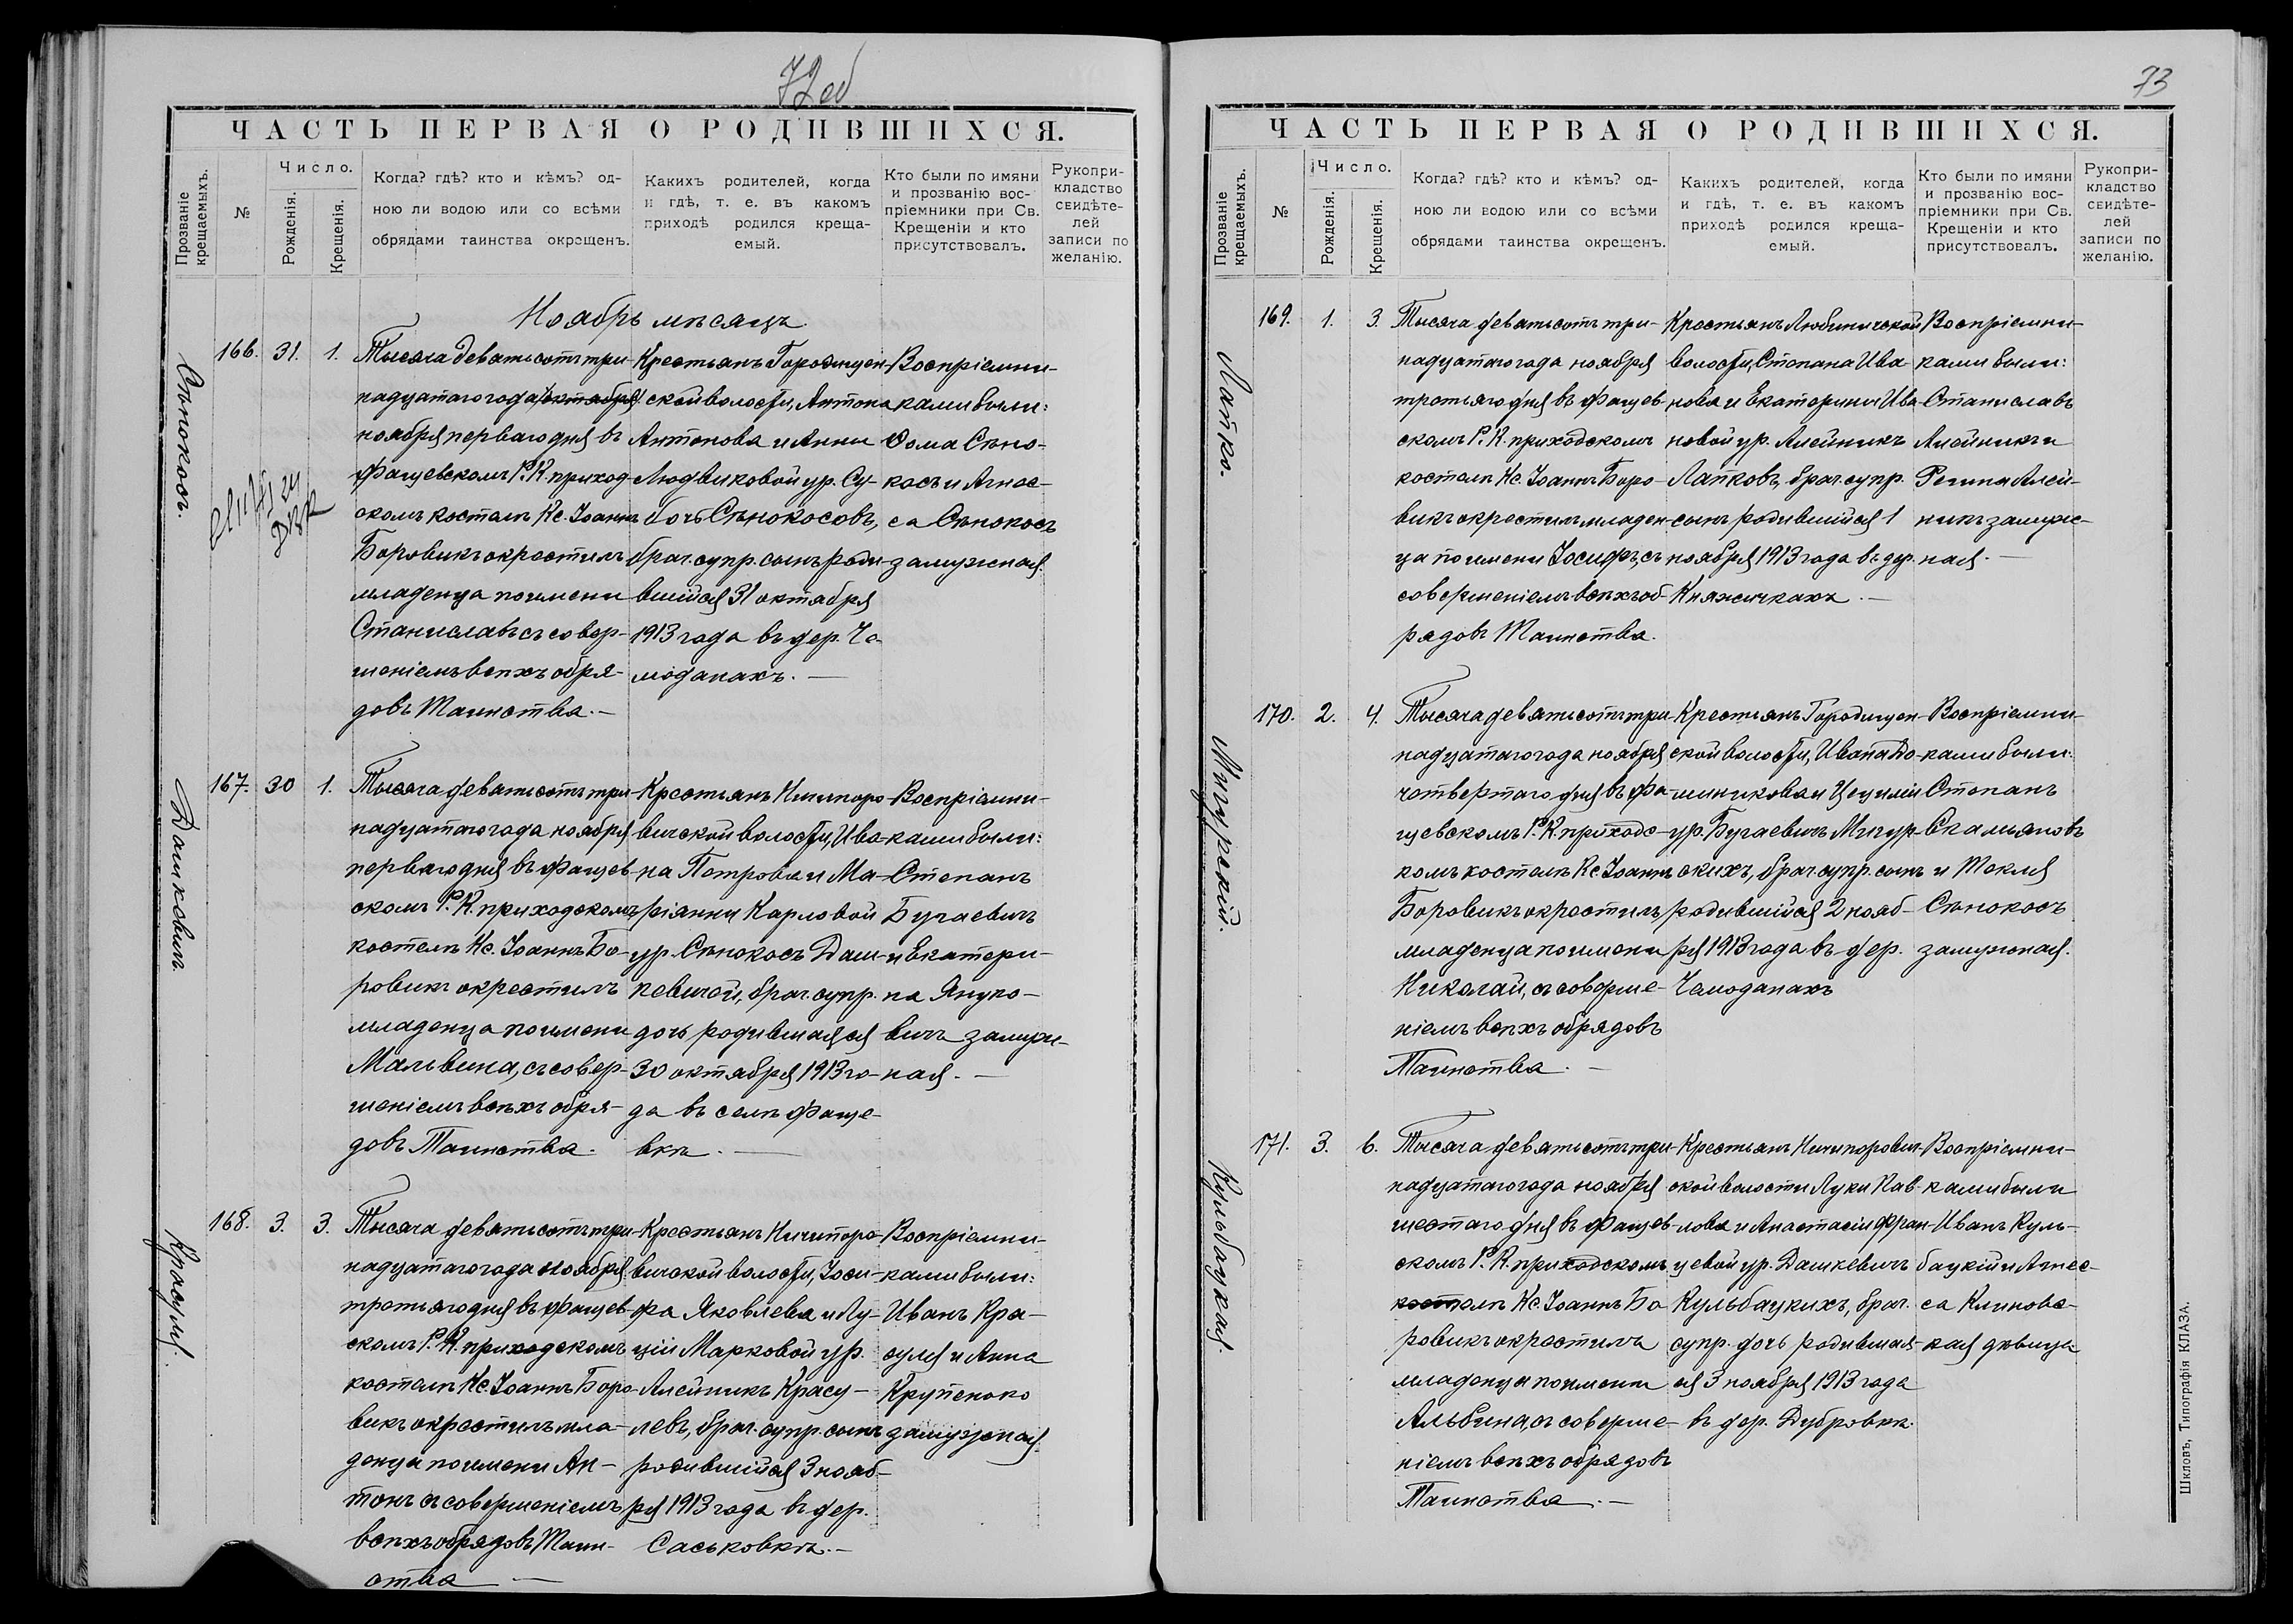 72об
ЧАСТЬ ПЕРВАЯ О РОДИВШИХСЯ.
Прозваніе крещаемыхъ.
№
Число.
Рожденія.
Крещенія.
Когда? гдѣ? кто и кѣмъ? од-
ною ли водою или со всѣми
обрядами таинства окрещенъ.
Какихъ родителей, когда
и гдѣ, т. е. въ какомъ
приходѣ родился креща-
емый.
Кто были по имяни
и прозванію вос-
пріемники при Св.
Крещеніи и кто
присутствовалъ.
Рукопри-
кладство
свидѣте-
лей
записи по
желанію.
Ноябрь мѣсяцъ.
Сѣнокосъ.
166. 31. 1.
Тысяча девятьсотъ три-
надцатаго года октября
ноября перваго дня въ
Фащевскомъ Р. К. приход-
скомъ костелѣ Кс. Іоаннъ
Боровикъ окрестилъ
младенца по имени
Станиславъ съ совер-
шеніемъ всѣхъ обря-
довъ Таинства.
Крестьянъ Городищен-
ской волости, Антона
Антонова и Анны
Людвиковой ур. Су-
бочь Сѣнокосовъ,
брач. супр. сынъ роди-
вшійся 31 октября
1913 года въ дер. Че-
моданахъ.
Воспріемни-
ками были:
Фома Сѣно-
косъ и Агнес-
са Сѣнокосъ
замужная.
Дашкевичъ
167. 30 1.
Тысяча девятьсотъ три-
надцатаго года ноября
перваго дня въ Фащев-
скомъ Р. К. приходскомъ
костелѣ Кс. Іоаннъ Бо-
ровикъ окрестилъ
младенца по имени
Мальвина, съ совер-
шеніемъ всѣхъ обря-
довъ Таинства.
Крестьянъ Ничипоро-
вичской волости, Ива-
на Петрова и Ма-
ріанны Карловой
ур. Сѣнокосъ Даш-
кевичей, брач. супр.
дочь родившаяся
30 октября 1913 го-
да въ селѣ Фаще-
вкѣ.
Воспріемни-
ками были:
Степанъ
Бугаевичъ
и Екатери-
на Януко-
вичъ замуж-
ная.
Красуля.
168. 3. 3.
Тысяча девятьсотъ три-
надцатаго года ноября
третьяго дня въ Фащев-
скомъ Р. К. приходскомъ
костелѣ Кс. Іоаннъ Боро-
викъ окрестилъ мла-
денца по имени Ан-
тонъ съ совершеніемъ
всѣхъ обрядовъ Таин-
ства
Крестьянъ Ничипоро-
вичской волости, Іоси-
фа Яковлева и Лу-
ціи Марковой ур.
Алейникъ Красу-
левъ, брач. супр. сынъ
родившійся 3 нояб-
ря 1913 года въ дер.
Саськовкѣ.
Воспріемни-
ками были:
Иванъ Кра-
суля и Анна
Крупенько
замужная.
73
ЧАСТЬ ПЕРВАЯ О РОДИВШИХСЯ.
Прозваніе крещаемыхъ.
№
Число.
Рожденія.
Крещенія.
Когда? гдѣ? кто и кѣмъ? од-
ною ли водою или со всѣми
обрядами таинства окрещенъ.
Какихъ родителей, когда
и гдѣ, т. е. въ какомъ
приходѣ родился креща-
емый.
Кто были по имяни
и прозванію вос-
пріемники при Св.
Крещеніи и кто
присутствовалъ.
Рукопри-
кладство
свидѣте-
лей
записи по
желанію.
Лапко.
169. 1. 3.
Тысяча девятьсотъ три-
надцатаго года ноября
третьяго дня въ Фащев-
скомъ Р. К. приходскомъ
костелѣ Кс. Іоаннъ Боро-
викъ окрестилъ младен-
ца по имени Іосифъ, съ
совершеніемъ всѣхъ об-
рядовъ Таинства.
Крестьянъ Любиничской
волости, Степана Ива-
нова и Екатерины Ива-
новой ур. Алейникъ
Лапковъ, брач. супр.
сынъ родившійся 1
ноября 1913 года въ дер.
Княжичкахъ.
Воспріемни-
ками были:
Станиславъ
Алейникъ и
Регина Алей-
никъ замуж-
ная.
Мигурскій.
170. 2. 4.
Тысяча девятьсотъ три-
надцатаго года ноября
четвертаго дня въ Фа-
щевскомъ Р. К. приходс-
комъ костелѣ Кс. Іоаннъ
Боровикъ окрестилъ
младенца по имени
Николай, съ соверше-
ніемъ всѣхъ обрядовъ
Таинства.
Крестьянъ Городищен-
ской волости, Ивана До-
миникова и Цециліи
ур. Бугаевичъ Мигур-
скихъ, брач. супр. сынъ
родившійся 2 нояб-
ря 1913 года въ дер.
Чемоданахъ
Воспріемни-
ками были:
Степанъ
Скамьяновъ
и Текля
Сѣнокосъ
замужная.
Кульбацкая.
171. 3. 6.
Тысяча девятьсотъ три-
надцатаго года ноября
шестаго дня въ Фащев-
скомъ Р. К. приходскомъ
костелѣ Кс. Іоаннъ Бо-
ровикъ окрестилъ
младенца по имени
Альбина, съ соверше-
ніемъ всѣхъ обрядовъ
Таинства.
Крестьянъ Ничипорович-
ской волости Луки Пав-
лова и Анастасіи Фран-
цевой ур. Дашкевичъ
Кульбацкихъ, брач.
супр. дочь родившая-
ся 3 ноября 1913 года
въ дер. Дубровкѣ.
Воспріемни-
ками были
Иванъ Куль-
бацкій и Агнес-
са Климовс-
кая дѣвица
Шкловъ, Типографія КЛАЗА.